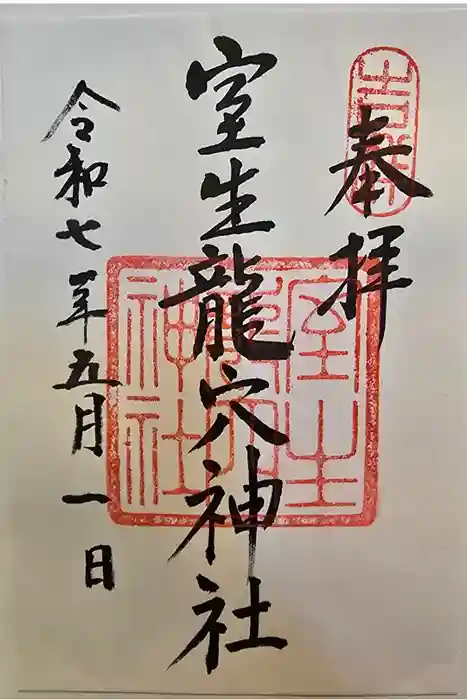 吉祥
奉拝
室生龍穴神社
室生
龍穴
神社
令和七年五月一日